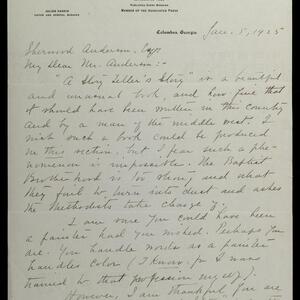 JULIAN HARRIS
EDITOR AND GENERAL MANAGER
PUBLISHED EVERY MORNING
MEMBER OF THE ASSOCIATED PRESS
Columbus, Georgia, Jan. 8, 1925
Sherwood Anderson, Esq.
My dear Mr. Anderson:-
"A Story Teller's Story" is a beautiful
and unusual book, and how fine that
it should have been written in this country
and by a man of the middle west. I
wish such a book could be produced
in this section, but I fear such a phe-
nomenon is impossible. The Baptist
Brotherhood is too strong and what
they fail to turn into dust and ashes
the Methodists take charge of.
I am sure you could have been
a painter had you wished. Perhaps you
are. You handle words as a painter
handles color (I know, for I was
named to that profession myself).
However, I am thankful you are